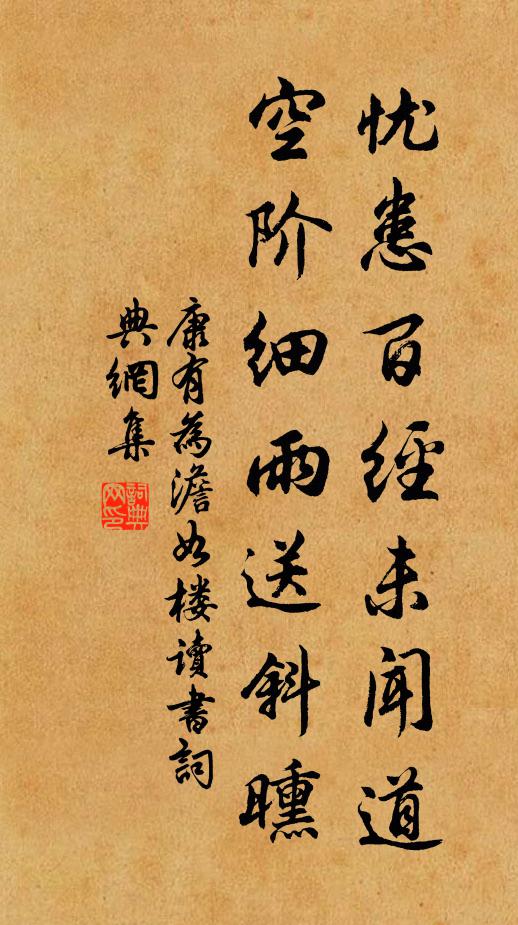 忧患百经未闻道
空阶细雨送斜曛
康有为澹如楼读书词
典網集
詞典网印